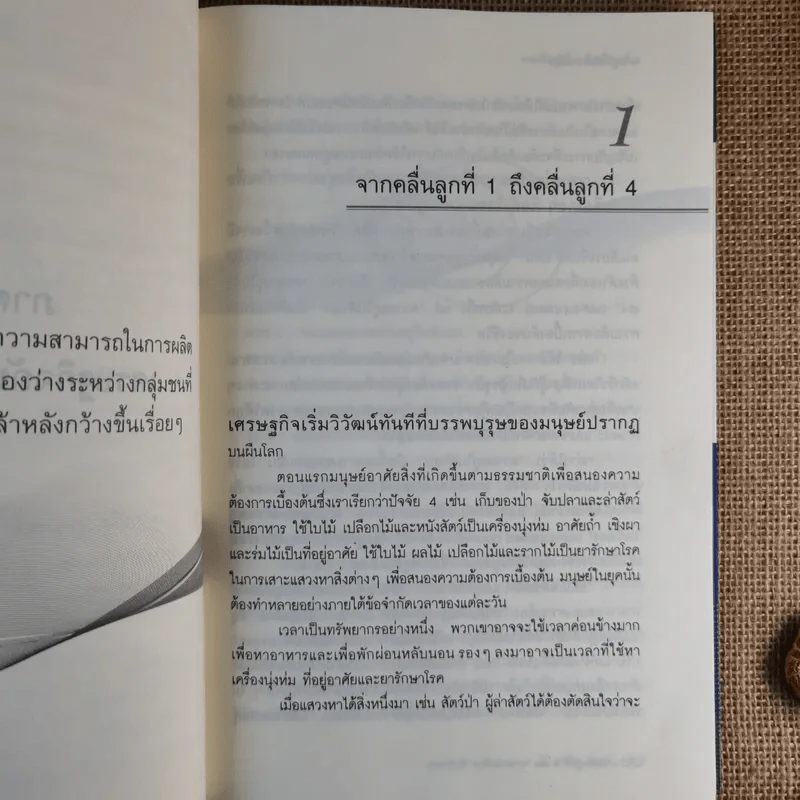 วามสามารถในการผลิต
องว่างระหว่างกลุ่มชนที่
าหลังกว้างขึ้นเรื่อยๆ
1
จากคลื่นลูกที่ 1 ถึงคลื่นลูกที่ 4
เศรษฐกิจเริ่มวิวัฒน์ทันทีที่บรรพบุรุษของมนุษย์ปรากฏ
บนผืนโลก
ตอนแรกมนุษย์อาศัยสิ่งที่เกิดขึ้นตามธรรมชาติเพื่อสนองความ
ต้องการเบื้องต้นซึ่งเราเรียกว่าปัจจัย 4 เช่น เก็บของป่า จับปลาและล่าสัตว์
เป็นอาหาร ใช้ใบไม้ เปลือกไม้และหนังสัตว์เป็นเครื่องนุ่งห่ม อาศัยถ้ำ เชิงผา
และร่มไม้เป็นที่อยู่อาศัย ใช้ใบไม้ ผลไม้ เปลือกไม้และรากไม้เป็นยารักษาโรค
ในการเสาะแสวงหาสิ่งต่างๆ เพื่อสนองความต้องการเบื้องต้น มนุษย์ในยุคนั้น
ต้องทำหลายอย่างภายใต้ข้อจำกัดเวลาของแต่ละวัน
เวลาเป็นทรัพยากรอย่างหนึ่ง พวกเขาอาจจะใช้เวลาค่อนข้างมาก
เพื่อหาอาหารและเพื่อพักผ่อนหลับนอน รองๆ ลงมาอาจเป็นเวลาที่ใช้หา
เครื่องนุ่งห่ม ที่อยู่อาศัยและยารักษาโรค
เมื่อแสวงหาได้สิ่งหนึ่งมา เช่น สัตว์ป่า ผู้ล่าสัตว์ได้ต้องตัดสินใจว่าจะ